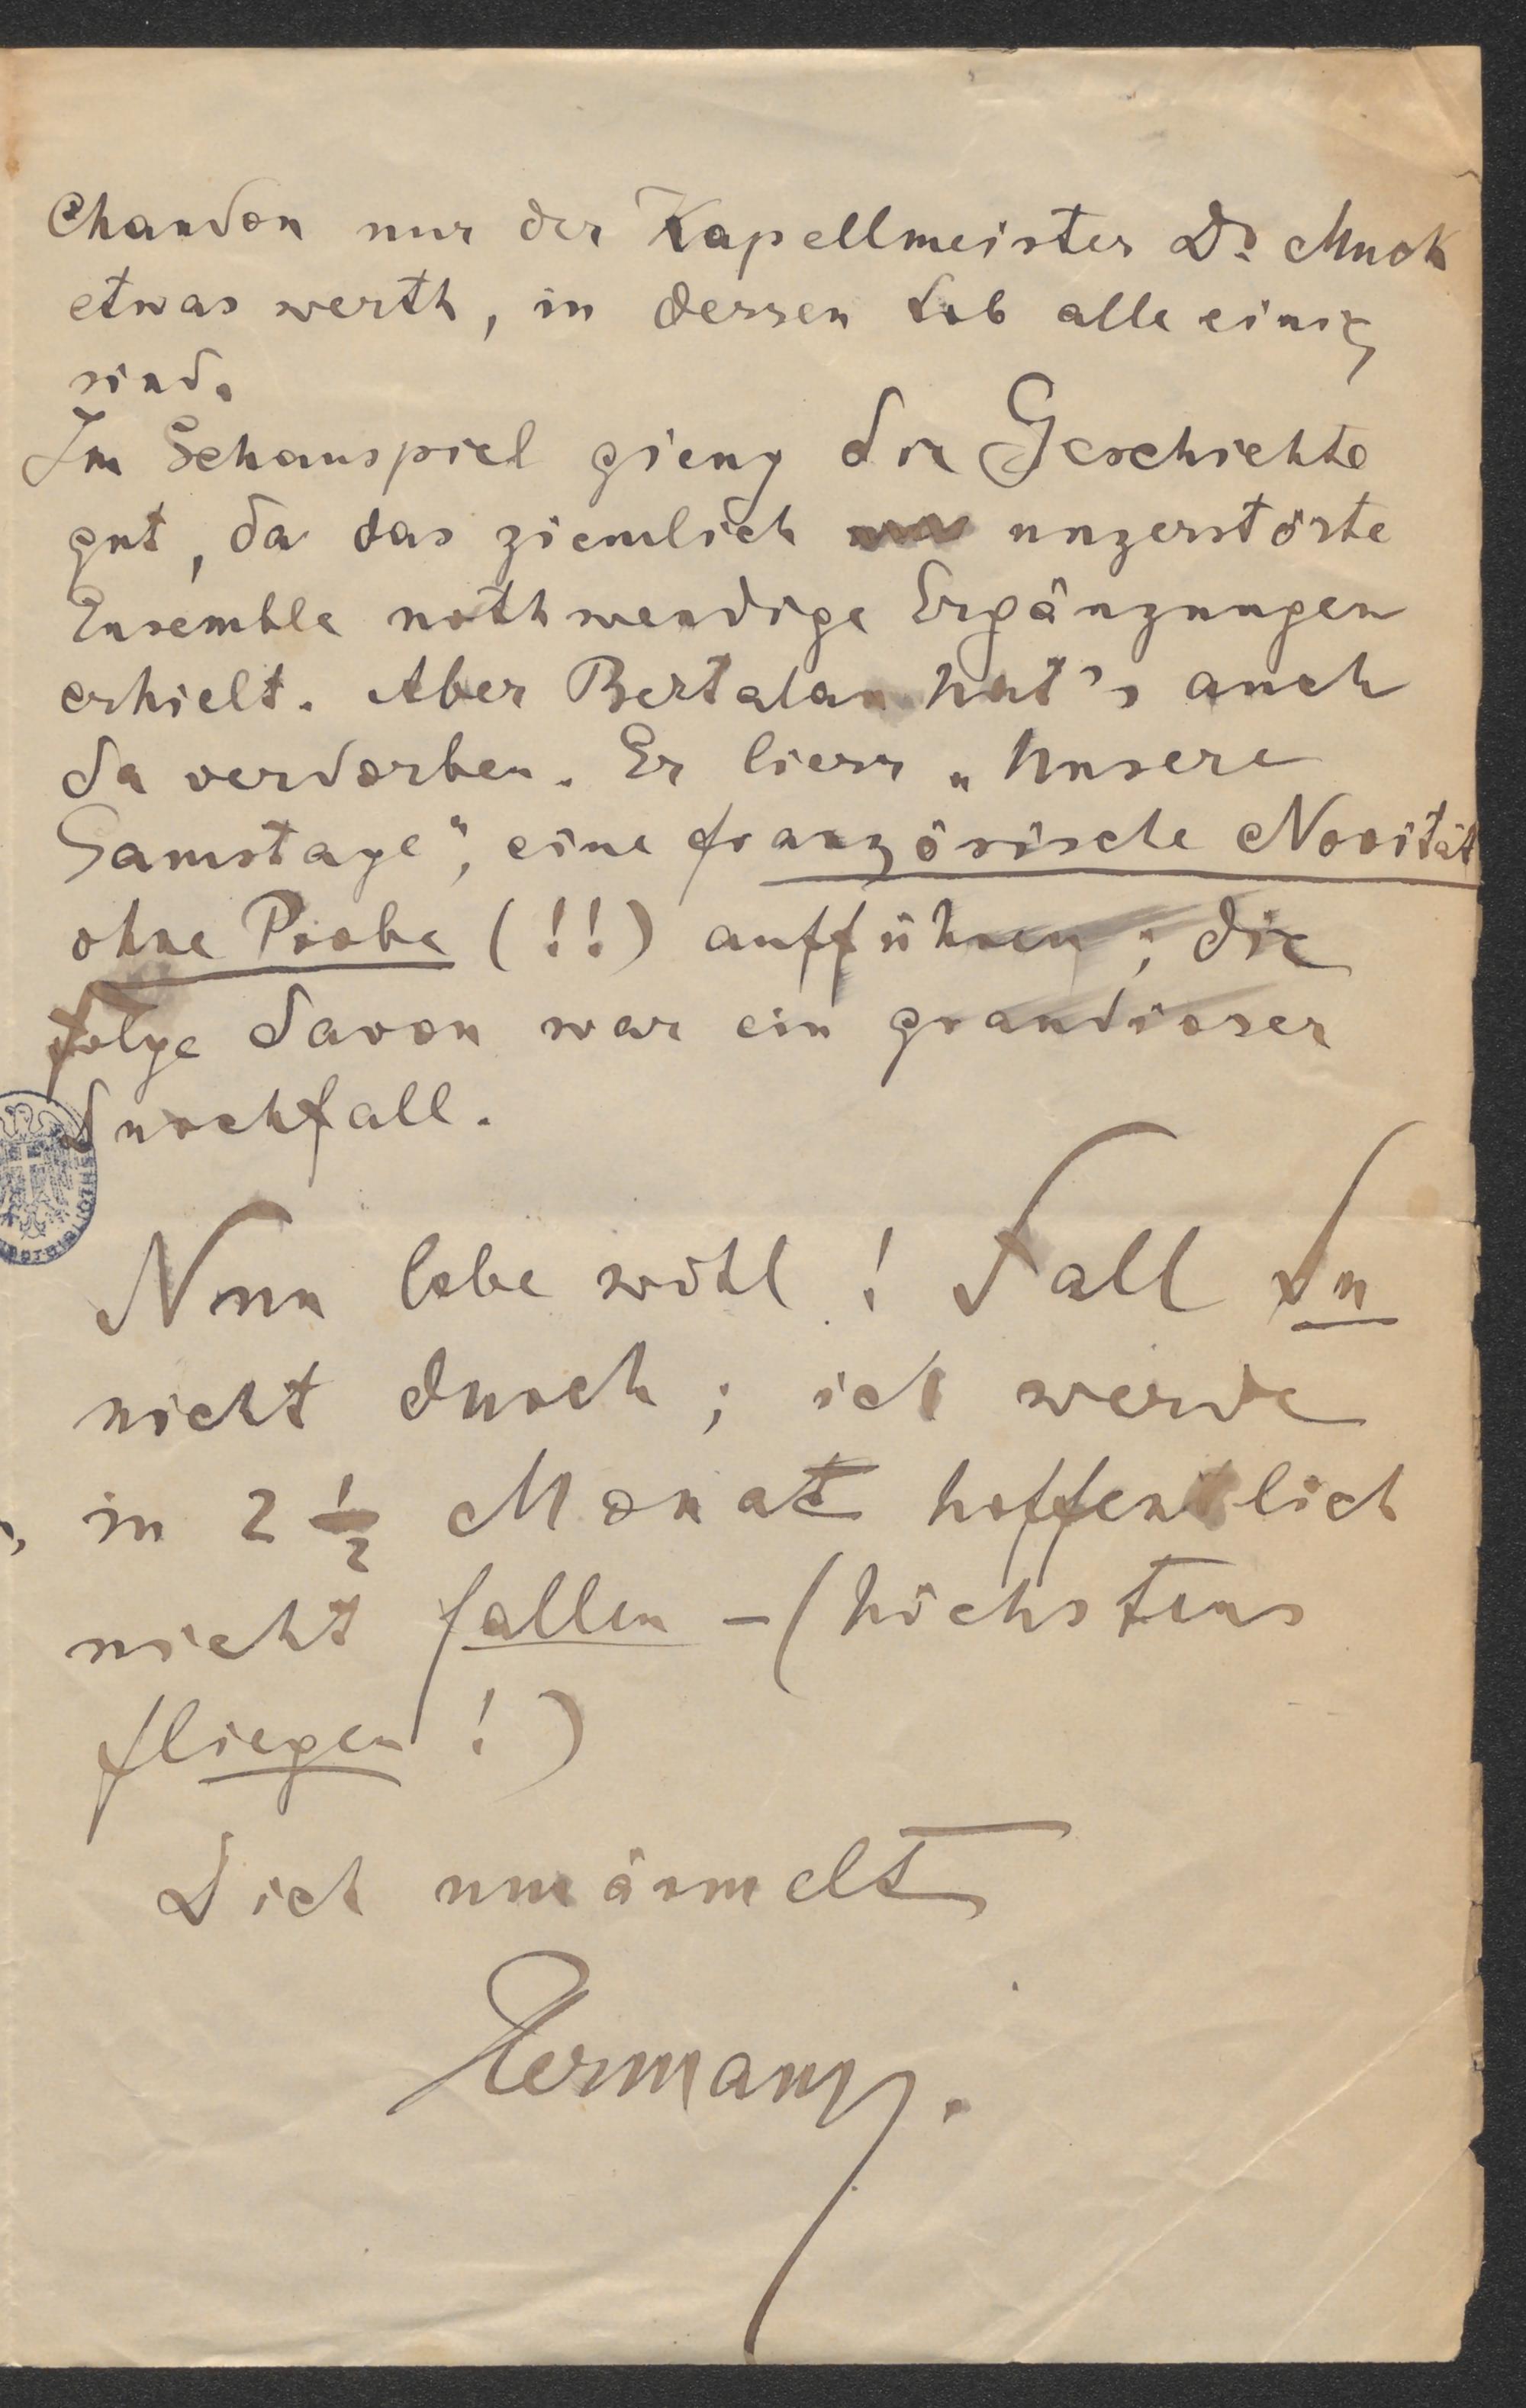 Chandon nur der Kapellmeister Dr Muck
etwas werth, in dessen Lob alle einig
sind.
Im Schauspiel gieng die Geschichte
gut, da das ziemlich unzerstörte
Ensemble nothwendige Ergänzungen
erhielt. Aber Bertalan hat's auch
da verdorben. Er liess „Unsere
Samstage", eine französische Novität
ohne Probe (!!) aufführen; die
Folge davon war ein grandioser
Durchfall.
Nun lebe wohl! Fall Du
nicht durch; ich werde
in 2 1/2 Monat hoffentlich
nicht fallen - (höchstens
fliegen!)
Dich umärmelt
Hermann.